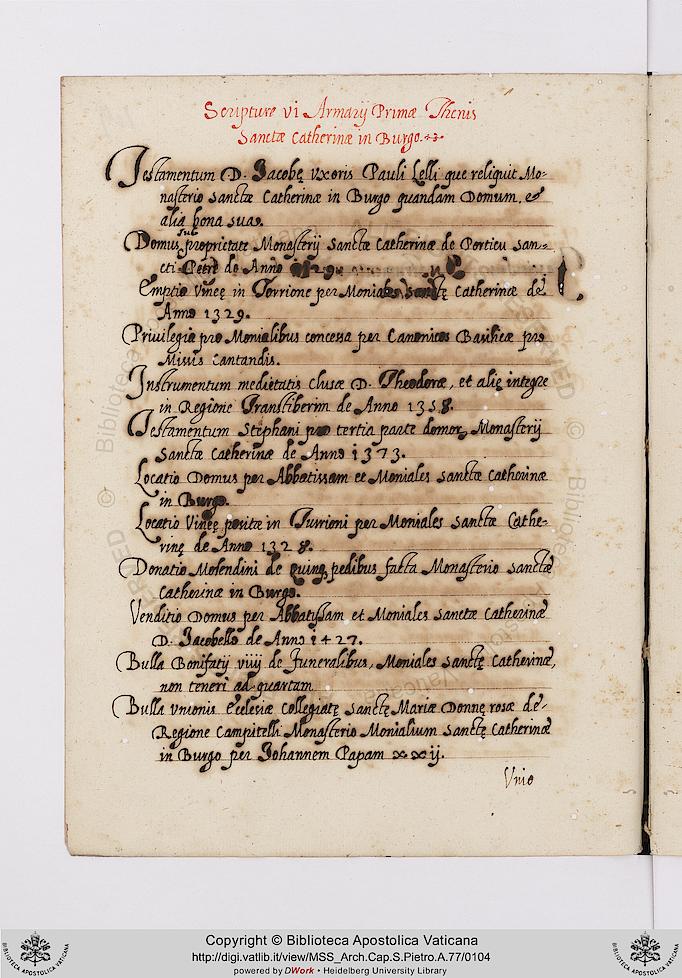 Scripture vi Armarij Primæ Thecis
Sanctæ Catherinæ in Burgo.
Testamentum D. Jacobę vxoris Pauli Lelli que reliquit Mo-
nasterio Sanctæ Catherinæ in Burgo quandam Domum, et
alia bona sua.
Domus sub proprietate Monasterij Sanctæ Catherinæ de Porticu San-
cti Petri de Anno
Emptio Vineę in Torrione per Moniales Sanctę Catherinæ de
Anno 1329.
Privilegia pro Monialibus concessa per Canonicos Basilicæ pro
Missis Cantandis.
Instrumentum medietatis clusæ D. Theodoræ, et alię integre
in Regione Transtiberim de Anno 1358.
Testamentum Stephani pro tertia parte domorum Monasterij
Sanctæ Catherinæ de Anno 1373.
Locatio Domus per Abbatissam et Moniales Sanctæ Catherinæ
in Burgo.
Locatio Vineę positæ in Turrioni per Moniales Sanctæ Cathe-
rinę de Anno 1328.
Donatio Molendini de quinq. pedibus facta Monasterio Sanctæ
Catherinæ in Burgo.
Venditio Domus per Abbatissam et Moniales Sanctæ Catherinæ
D. Jacobello de Anno 1427.
Bulla Bonifatij viiij de Funeralibus, Moniales Sanctę Catherinæ,
non teneri ad quartam
Bulla Vnionis Ecclesiæ Collegiatę Sanctę Mariæ Donnę rosæ de
Regione Campitelli Monasterio Monialium Sanctę Catherinæ
in Burgo per Johannem Papam xxij.
Vnio
Copyright © Biblioteca Apostolica Vaticana
http://digi.vatlib.it/view/MSS_Arch.Cap.S.Pietro.A.77/0104
powered by DWork • Heidelberg University Library